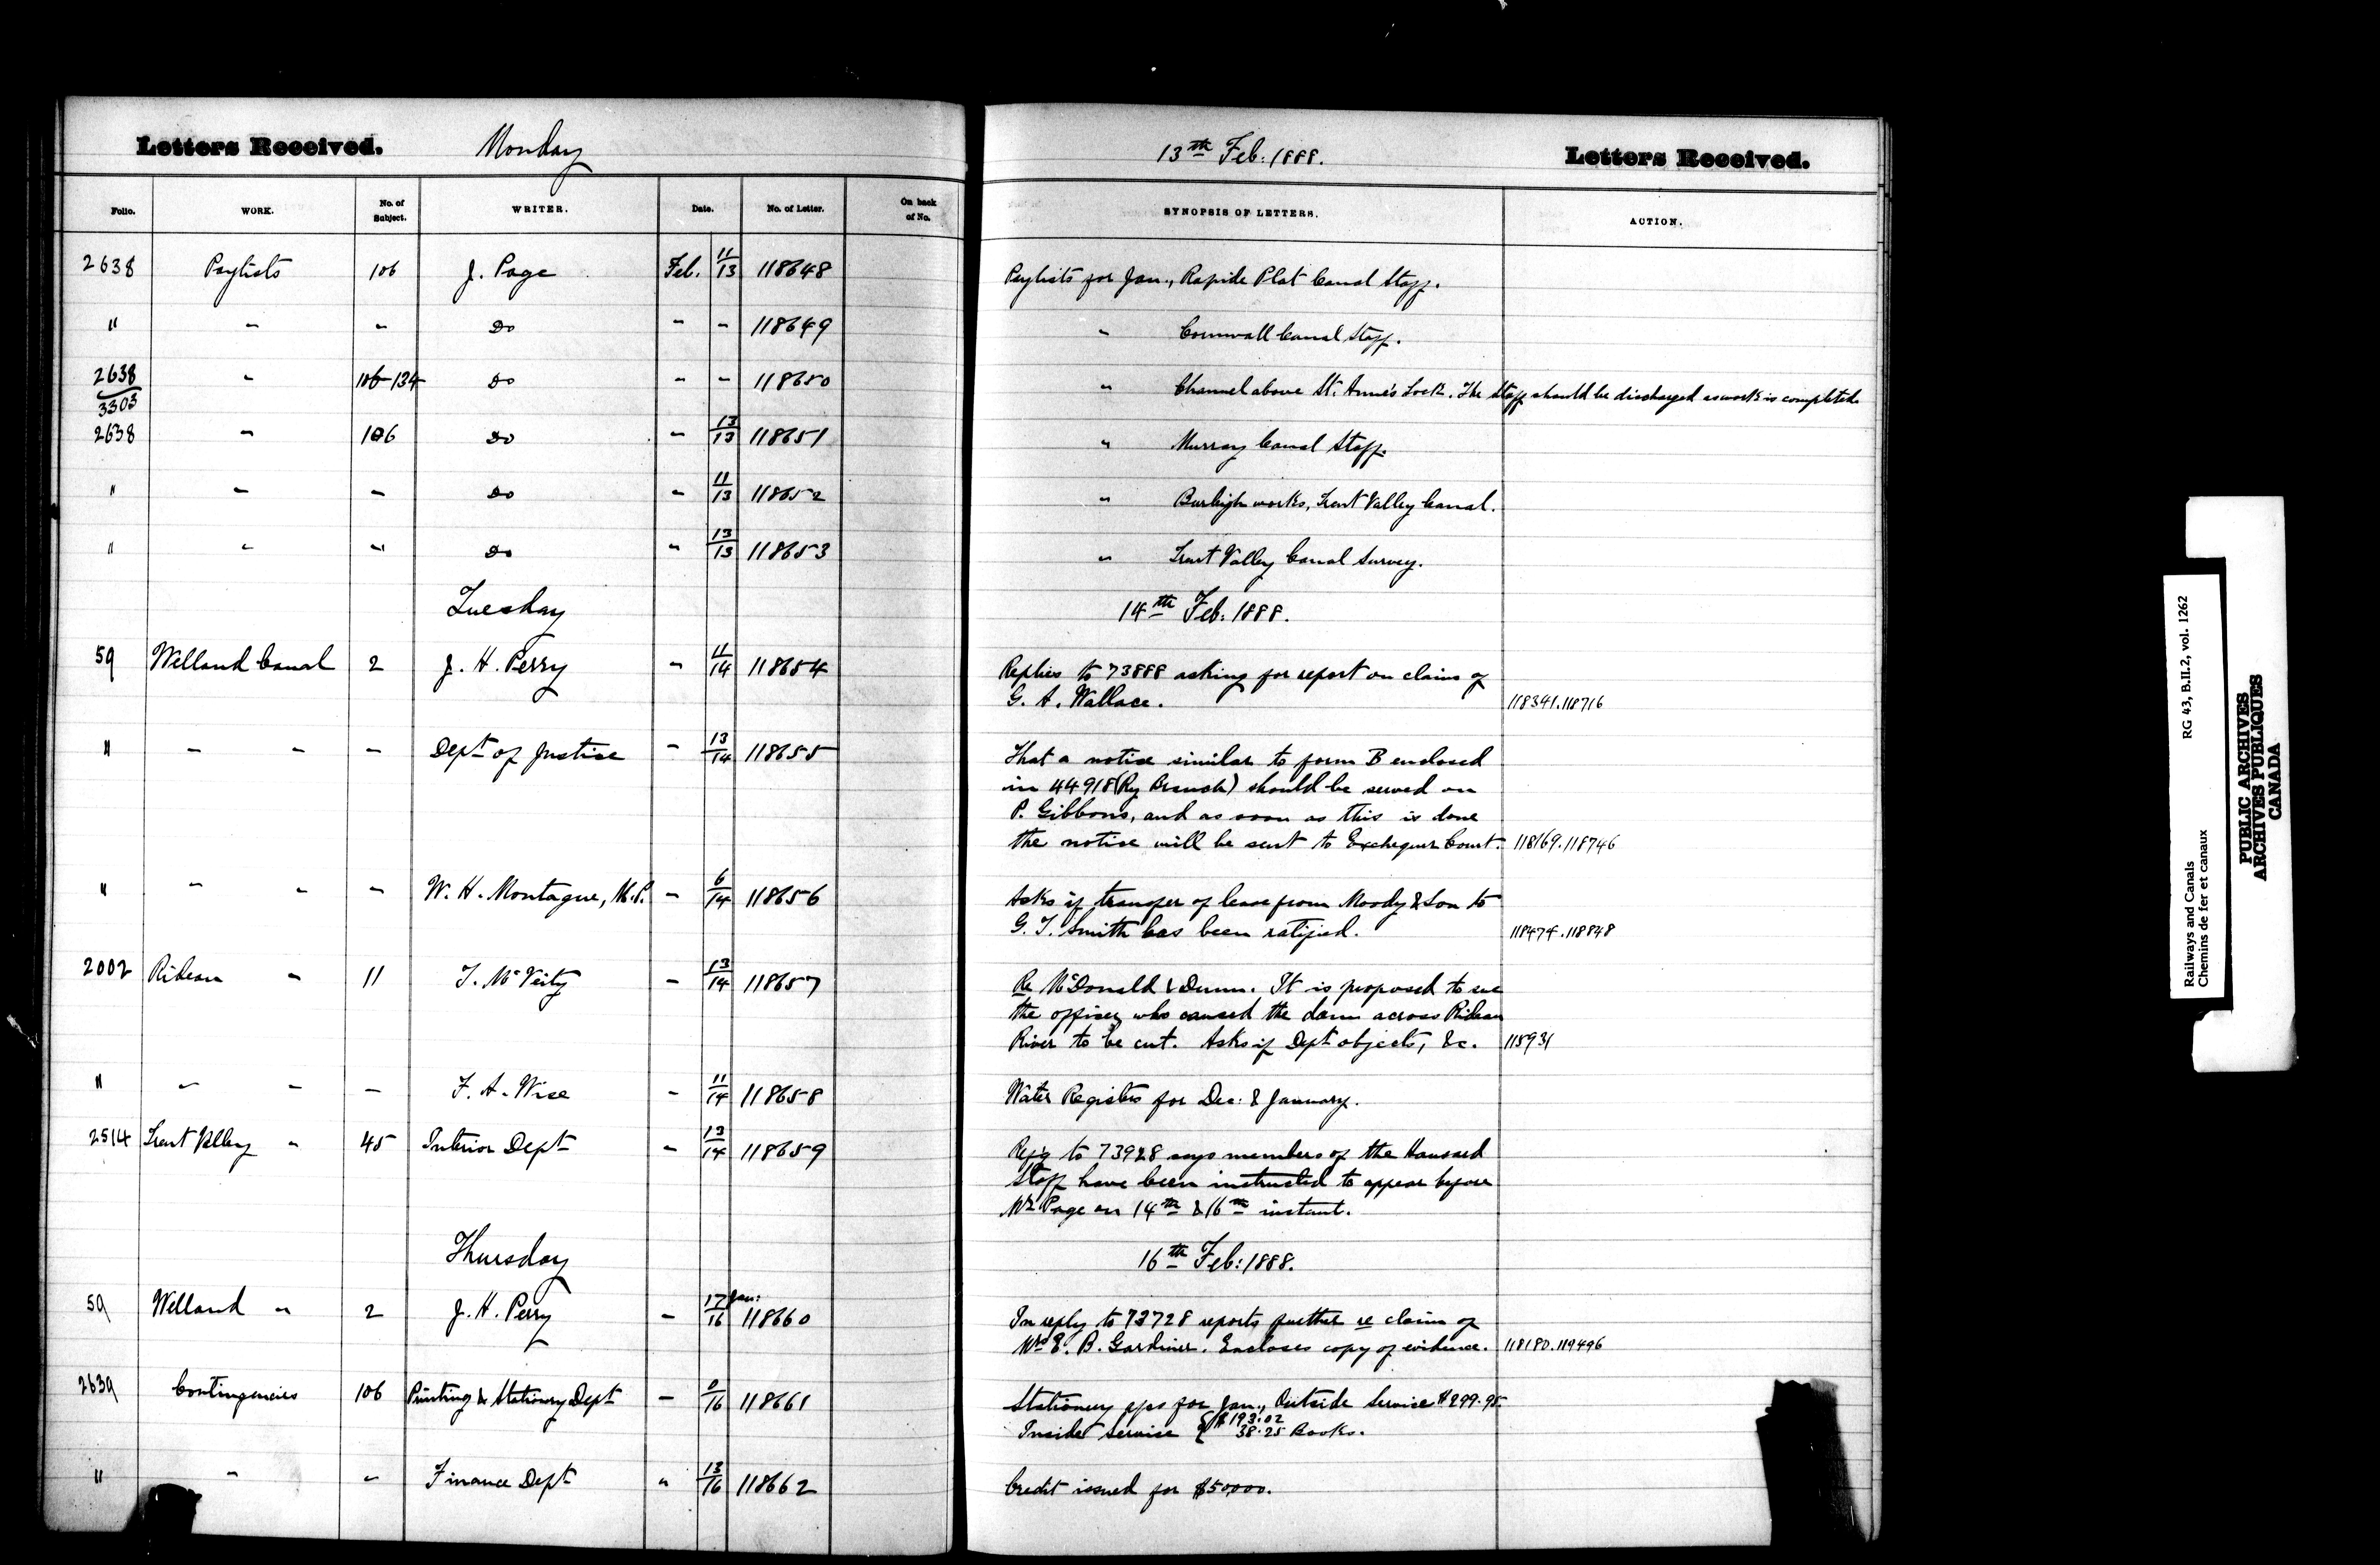 Letters Received. Monday
Folio. WORK. No. of Subject. WRITER. Date. No. of Letter. On back of No.
2638 Paylists 106 J. Page Feb. 11/13 118648
" " " Do " " 118649
2638/3303 " 106-134 Do " " 118650
2638 " 106 Do " 13/13 118651
" " " Do " 11/13 118652
" " " Do " 13/13 118653
Tuesday
59 Welland Canal 2 J. H. Perry " 11/14 118654
" " " " Dept of Justice " 13/14 118655
" " " " W. H. Montague, M.P. " 6/14 118656
2002 Rideau " 11 T. McVeity " 13/14 118657
" " " " F. A. Wise " 11/14 118658
2514 Trent Valley " 45 Interior Dept " 13/14 118659
Thursday
59 Welland " 2 J. H. Perry " 17 Jan:/16 118660
2639 Contingencies 106 Printing & Stationery Dept " /16 118661
" " " Finance Dept " 13/16 118662
13th Feb: 1888. Letters Received.
SYNOPSIS OF LETTERS. ACTION.
Paylists for Jan., Rapide Plat Canal Staff.
" Cornwall Canal Staff.
" Channel above St. Anne's Lock. The Staff should be discharged as work is completed
" Murray Canal Staff.
" Burleigh works, Trent Valley Canal.
" Trent Valley Canal Survey.
14th Feb: 1888.
Replies to 73888 asking for report on claim of
G. A. Wallace. 118341.118716
That a notice similar to form B enclosed
in 44918 (Ry Branch) should be served on
P. Gibbons, and as soon as this is done
the notice will be sent to Exchequer Court. 118169.118746
Asks if transfer of lease from Moody & Son to
G. T. Smith has been ratified. 118474.118848
Re McDonald & Dunn. It is proposed to sue
the officer who caused the dam across Rideau
River to be cut. Asks if Dept objects, &c. 115931
Water Registers for Dec: & January.
Reply to 73928 says members of the Hansard
Staff have been instructed to appear before
Mr Page on 14th & 16th instant.
16th Feb: 1888.
In reply to 73728 reports further re claim of
Mrs E. B. Gardiner. Encloses copy of evidence. 118180.119496
Stationery a/cs for Jan., Outside Service $299.95
Inside Service { $193.02
38.25 Books.
Credit issued for $50000.
Railways and Canals RG 43, B.II.2, vol. 1262
Chemins de fer et canaux
PUBLIC ARCHIVES
ARCHIVES PUBLIQUES
CANADA